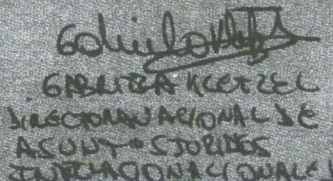 GABRIELA KLETZEL
DIRECTORA NACIONAL DE
ASUNTOS JURIDICOS
INTERNACIONALE